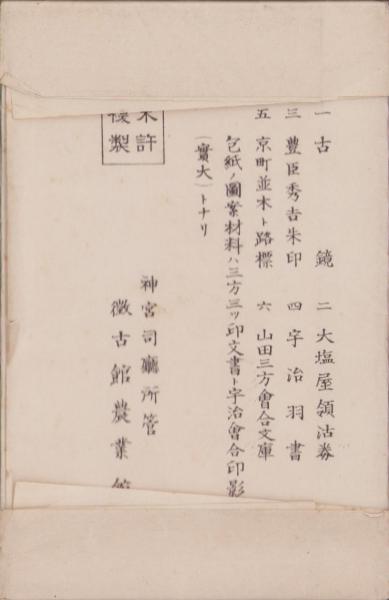 一 古鏡 二 大塩屋領沽券
三 豊臣秀吉朱印 四 宇治羽書
五 京町並木ト路標 六 山田三方會合文庫
包紙ノ圖案材料ハ三方三ッ印文書ト宇治會合印影
（實大）トナリ
神宮司廳所管
徴古館農業館
不許
複製